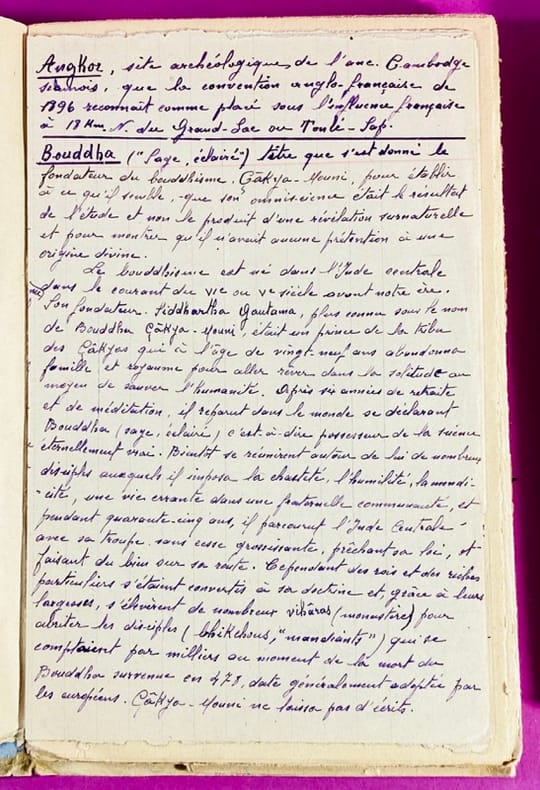 Angkor, site archéologique de l'anc. Cambodge
siamois, que la convention anglo-française de
1896 reconnait comme placé sous l'influence française
à 18 Km. N. du Grand-Lac ou Tonlé-Sap.
Bouddha ("Sage, éclairé") titre que s'est donné le
fondateur du bouddhisme, Çâkya-Mouni, pour établir
à ce qu'il semble, que son omniscience était le résultat
de l'étude et non le produit d'une révélation surnaturelle
et pour montrer qu'il n'avait aucune prétention à une
origine divine.
Le bouddhisme est né dans l'Inde centrale
dans le courant du VIe ou Ve siècle avant notre ère.
Son fondateur Siddhartha Gautama, plus connu sous le nom
de Bouddha Çâkya-Mouni, était un prince de la tribu
des Çâkyas qui à l'âge de vingt-neuf ans abandonna
famille et royaume pour aller rêver dans la solitude au
moyen de sauver l'humanité. Après six années de retraite
et de méditation, il reparut dans le monde se déclarant
Bouddha (sage, éclairé) c'est-à-dire possesseur de la science
éternellement vrai. Bientôt se réunirent autour de lui de nombreux
disciples auxquels il imposa la chasteté, l'humilité, la mendi-
-cité, une vie errante dans une fraternelle communauté, et
pendant quarante-cinq ans, il parcourut l'Inde Centrale
avec sa troupe sans cesse grossissante, prêchant sa loi, et
faisant du bien sur sa route. Cependant des rois et des riches
particuliers s'étaient convertis à sa doctrine et grâce à leurs
largesses, s'élevèrent de nombreux vihâras (monastère) pour
abriter les disciples (bhikchous, "mandiants") qui se
comptaient par milliers au moment de la mort du
Bouddha survenue en 478, date généralement adoptée par
les européens. Çâkya-Mouni ne laissa pas d'écrits.